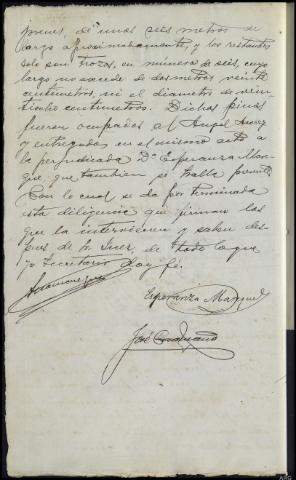 jovenes, de unos seis metros de
largo aproximadamente, y los restantes
solo son trozos, en número de seis, cuyo
largo no excede de dos metros veinte
centimetros, ni el diametro de vein-
ticulco centimetros. Dichos pinos
fueron ocupados al Angel
y entregados en el mismo acto a
la perjudicada Dª Esperanza Mar-
que, que tambien se halla presente
Con lo cual se da por terminada
esta diligencia que firman los
que la intervienen y saben des-
pues de S. Sª Juez, de todo lo que
yo Secretario doy fé.
Esperanza
José